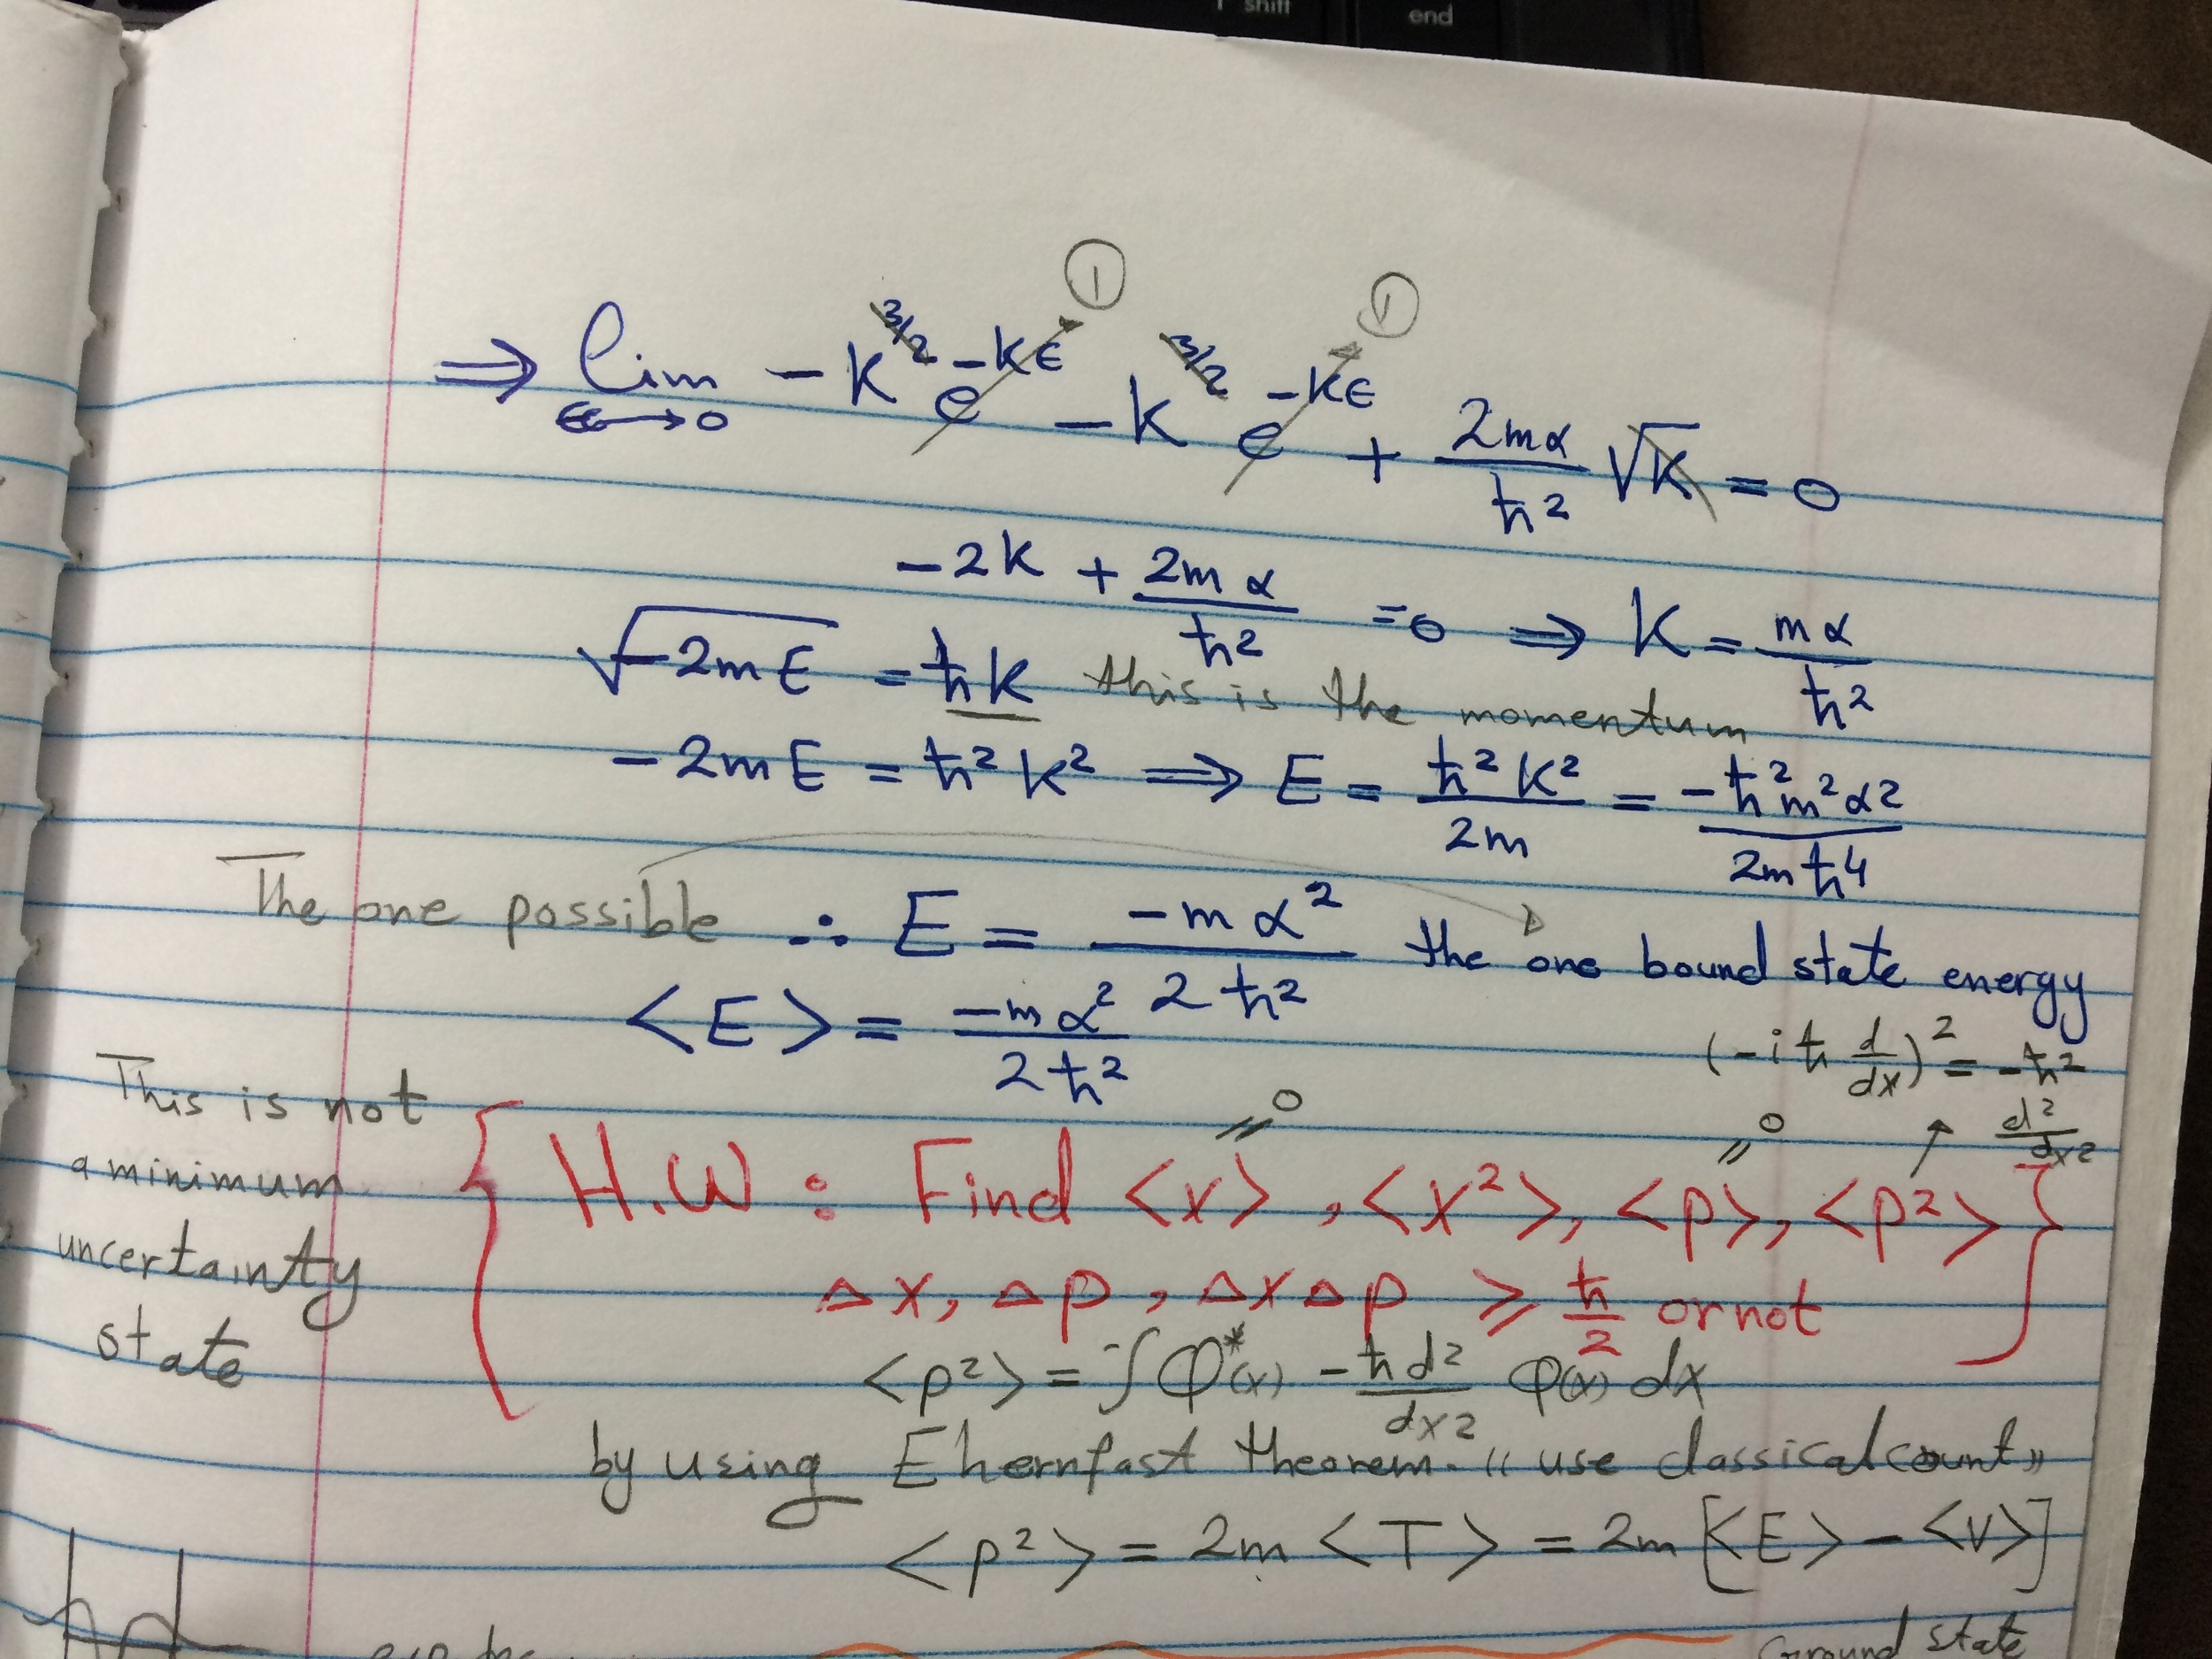 shift
end
① ①
⟹ lim ϵ→0 −K^3/2 e^−Kϵ − K^3/2 e^−Kϵ + 2mα/ħ² √K = 0
−2K + 2mα/ħ² = 0 ⟹ K = mα/ħ²
√−2mE = ħK this is the momentum
−2mE = ħ²K² ⟹ E = ħ²K²/2m = −ħ²m²α²/2mħ⁴
The one possible ∴ E = −mα²/2ħ² the one bound state energy
<E> = −mα²/2ħ²
(−iħ d/dx)² = −ħ² d²/dx²
This is not
a minimum
uncertainty
state
= 0 = 0
H.W : Find <x>, <x²>, <p>, <p²>
Δx, Δp, ΔxΔp ⩾ ħ/2 or not
<p²> = ∫φ*(x) −ħd²/dx2 φ(x) dx
by using Ehernfast theorem. «use classical count»
<p²> = 2m <T> = 2m [<E> − <V>]
Ground state